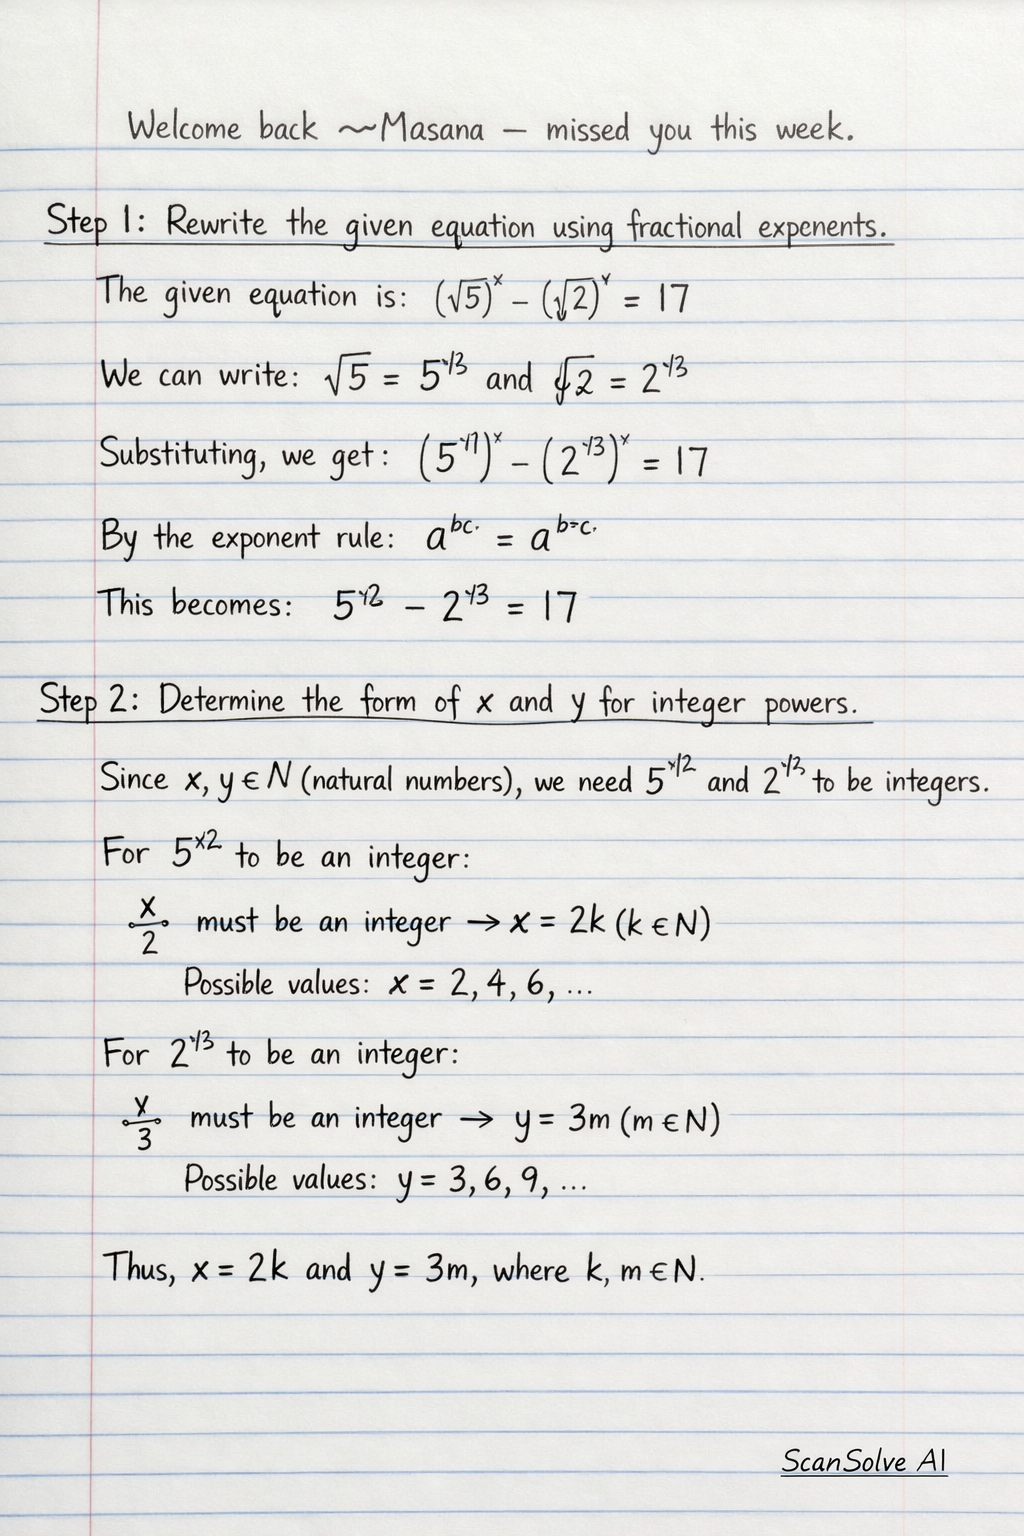 Welcome back ~Masana — missed you this week.
Step 1: Rewrite the given equation using fractional expenents.
The given equation is: (√5)ˣ − (∛2)ʸ = 17
We can write: √5 = 5^1/3 and ∛2 = 2^1/3
Substituting, we get: (5^1/7)ˣ − (2^1/3)ˣ = 17
By the exponent rule: a^bc. = a^b=c.
This becomes: 5^Y2 − 2^Y3 = 17
Step 2: Determine the form of x and y for integer powers.
Since x, y ∈ N (natural numbers), we need 5^x/2 and 2^y/3 to be integers.
For 5^x2 to be an integer:
x/2 must be an integer → x = 2k (k ∈ N)
Possible values: x = 2, 4, 6, ...
For 2^y/3 to be an integer:
y/3 must be an integer → y = 3m (m ∈ N)
Possible values: y = 3, 6, 9, ...
Thus, x = 2k and y = 3m, where k, m ∈ N.
ScanSolve AI